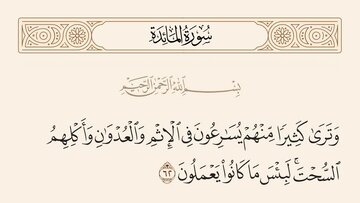 سُورَةُ المَائِدَةِ
بِسْمِ اللَّهِ الرَّحْمَٰنِ الرَّحِيمِ
وَتَرَىٰ كَثِيرٗا مِّنۡهُمۡ يُسَٰرِعُونَ فِي ٱلۡإِثۡمِ وَٱلۡعُدۡوَٰنِ وَأَكۡلِهِمُ
ٱلسُّحۡتَۚ لَبِئۡسَ مَا كَانُواْ يَعۡمَلُونَ ٦٢